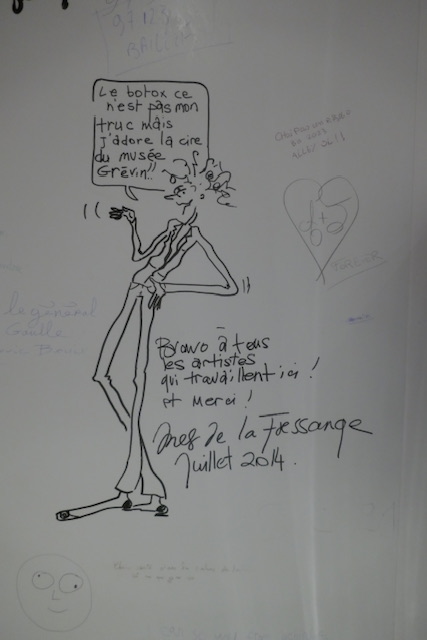 97123
BAILLIF
Le botox ce
n'est pas mon
truc mais
j'adore la cire
du musée
Grévin!!
le général
Gaulle
Bravo à tous
les artistes
qui travaillent ici !
et Merci !
Ines de la Fressange
Juillet 2014.